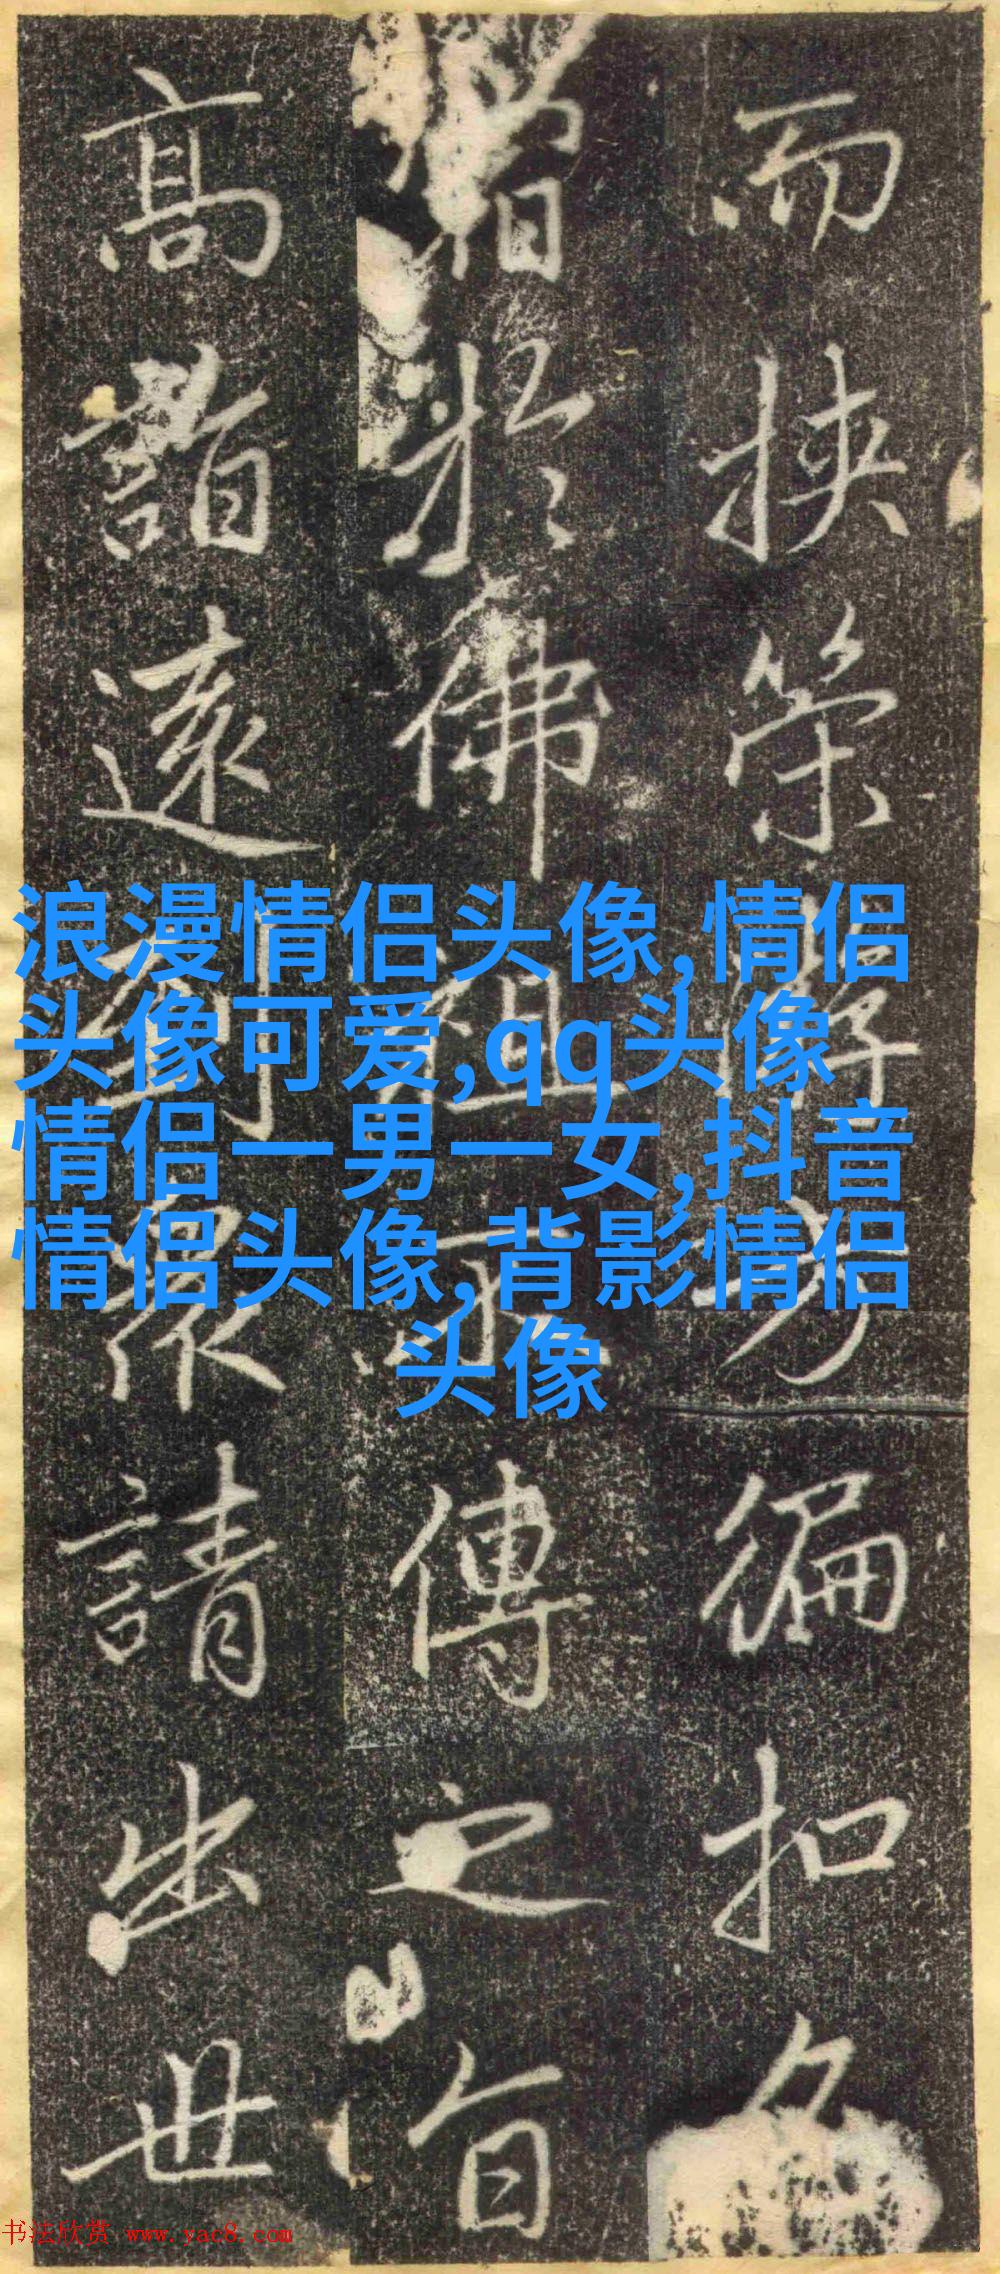 而挾策游方徧扣
於佛祖不傳之旨
高詣遠到眾請出世
浪漫情侣头像,情侣
头像可爱,qq头像
情侣一男一女,抖音
情侣头像,背影情侣
头像
书法欣赏 www.yac8.com